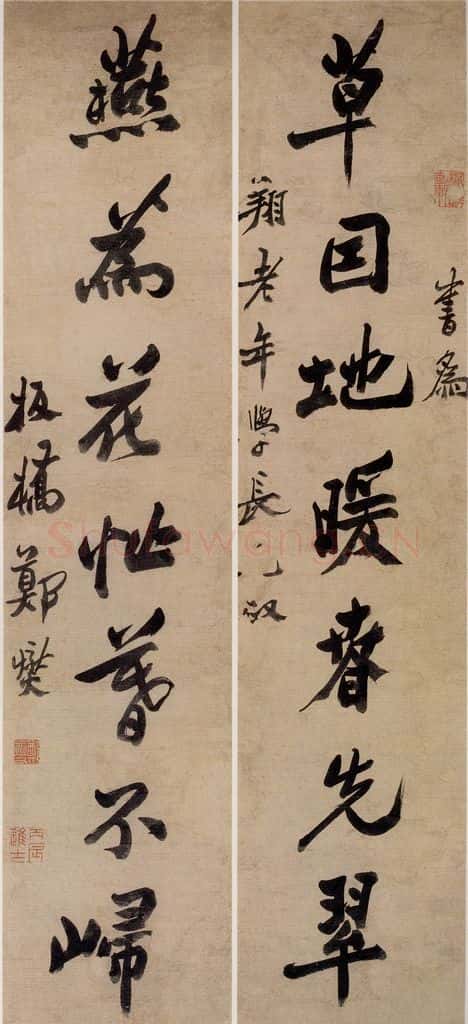 書為
草因地暖春先翠
翔老年學長兄政
燕為花忙暮不歸
板橋鄭燮
丙辰進士
Shufawang.CN